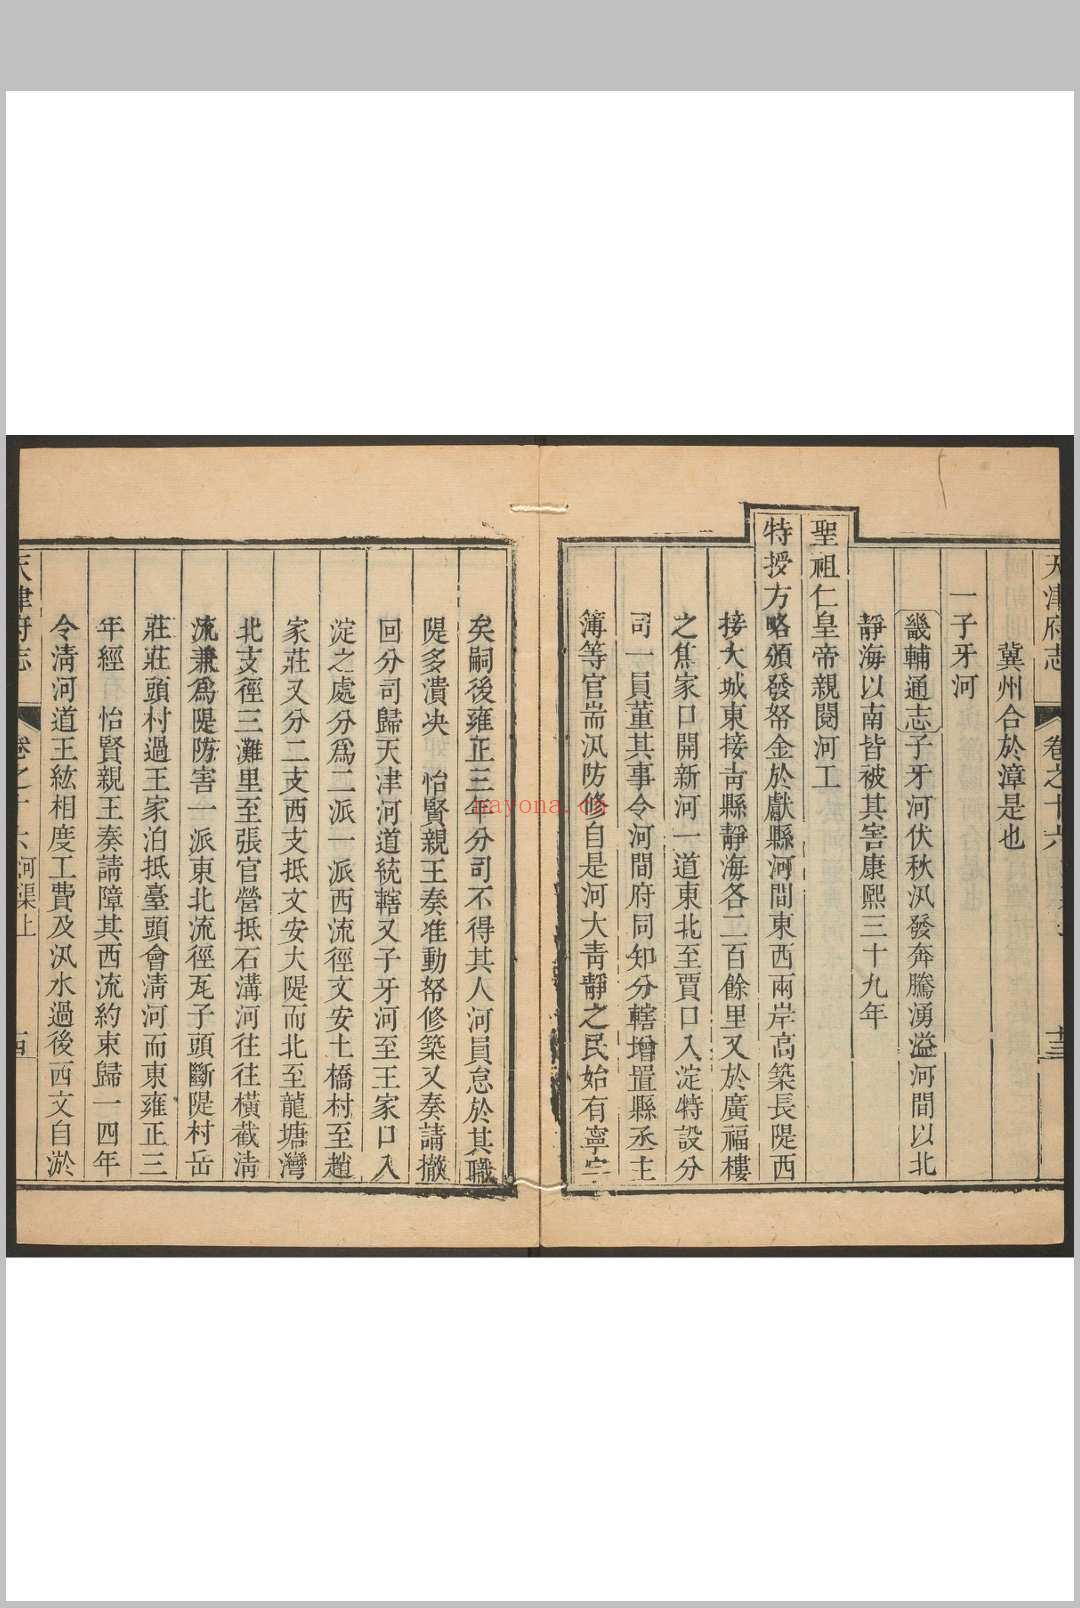 天津府志 卷之十六 十三
冀州合於漳是也
一子牙河
畿輔通志子牙河伏秋汛發奔騰湧溢河間以北
靜海以南皆被其害康熙三十九年
聖祖仁皇帝親閱河工
特授方略頒發帑金於獻縣河間東西兩岸高築長隄西
接大城東接青縣靜海各二百餘里又於廣福樓
之焦家口開新河一道東北至賈口入淀特設分
司一員董其事令河間府同知分轄增置縣丞主
簿等官耑汛防修自是河大青靜之民始有寧宇
矣嗣後雍正三年分司不得其人河員怠於其職
隄多潰决 怡賢親王奏准動帑修築又奏請撤
回分司歸天津河道統轄又子牙河至王家口入
淀之處分爲二派一派西流徑文安土橋村至趙
家莊又分二支西支抵文安大隄而北至龍塘灣
北支徑三灘里至張官營抵石溝河往往橫截淸
流兼爲隄防害一派東北流徑瓦子頭斷隄村岳
莊莊頭村過王家泊抵臺頭會淸河而東雍正三
年經 怡賢親王奏請障其西流約束歸一四年
令淸河道王紘相度工費及汛水過後西文自淤
天津府志 卷之十六 河渠上 十四
nayona.cn